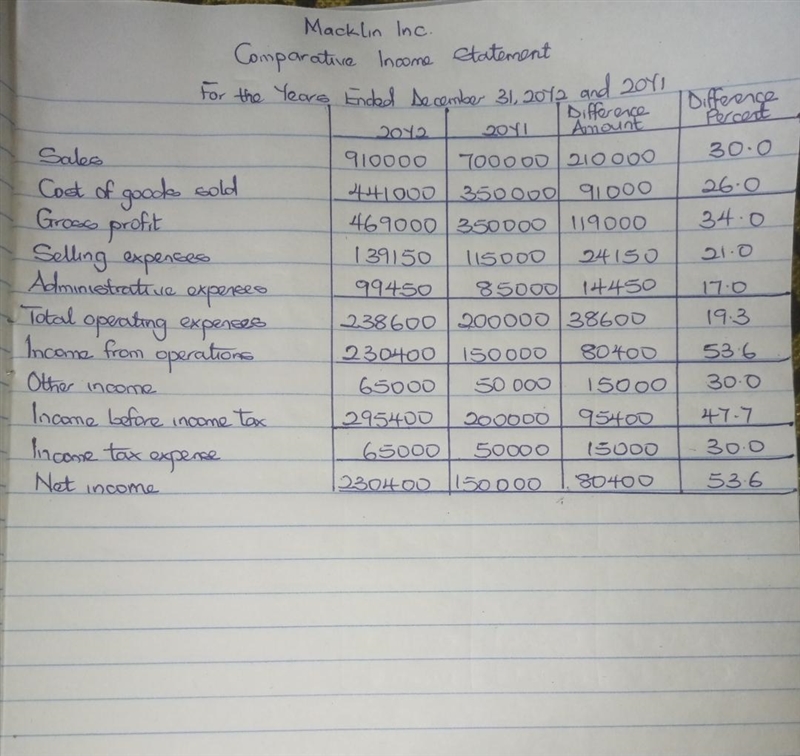 Macklin Inc.
Comparative Income Statement
For the Years Ended December 31, 20Y2 and 20Y1
20Y2 20Y1 Difference Amount Difference Percent
Sales 910000 700000 210000 30.0
Cost of goods sold 441000 350000 91000 26.0
Gross profit 469000 350000 119000 34.0
Selling expenses 139150 115000 24150 21.0
Administrative expenses 99450 85000 14450 17.0
Total operating expenses 238600 200000 38600 19.3
Income from operations 230400 150000 80400 53.6
Other income 65000 50000 15000 30.0
Income before income tax 295400 200000 95400 47.7
Income tax expense 65000 50000 15000 30.0
Net income 230400 150000 80400 53.6